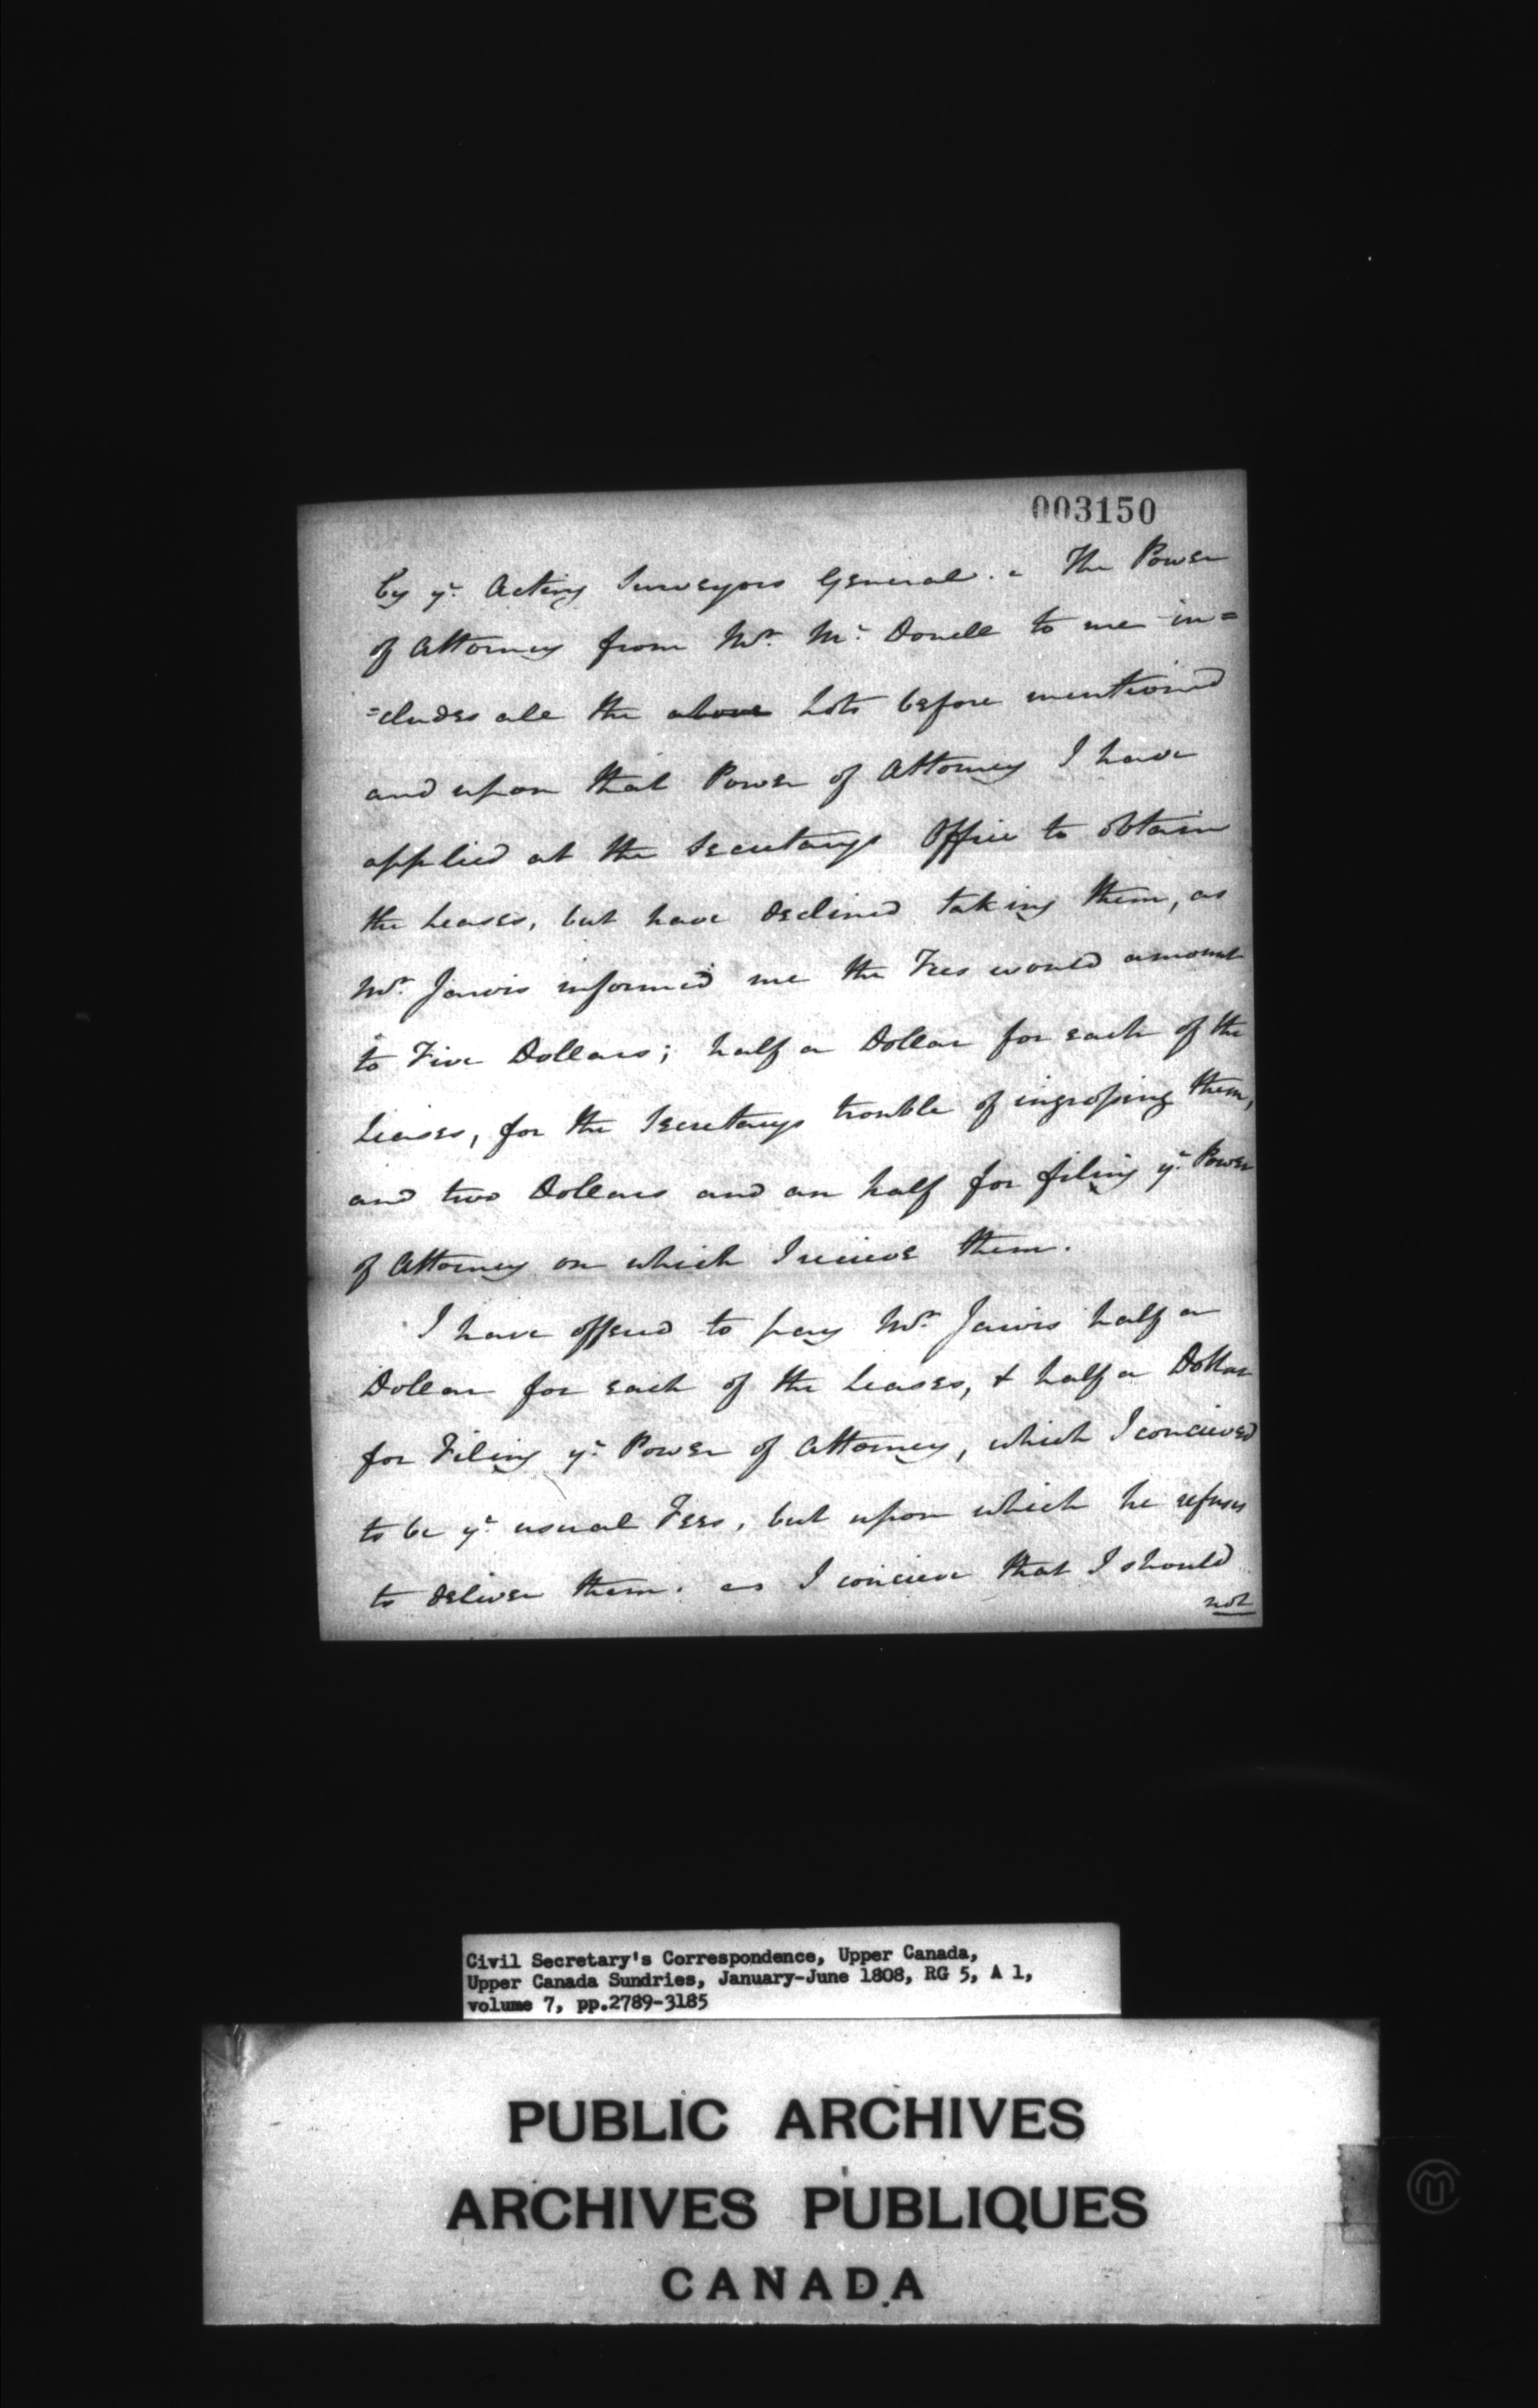 003150
by yr. Acting Surveyors General. - The Power
of Attorney from Mr. Mc. Donell to me in=
=cludes all the above Lots before mentioned
and upon that Power of Attorney I have
applied at the Secretarys Office to obtain
the Leases, but have declined taking them, as
Mr. Jarvis informed me the Fees would amount
to Five Dollars; half a Dollar for each of the
Leases, for the Secretarys trouble of ingrossing them,
and two Dollars and an half for filing yr. Power
of Attorney on which I recieve them.
I have offered to pay Mr. Jarvis half a
Dollar for each of the Leases, & half a Dollar
for Filing yr. Power of Attorney, which I concieved
to be yr. usual Fees, but upon which he refuses
to deliver them. as I concieve that I should
not
Civil Secretary's Correspondence, Upper Canada,
Upper Canada Sundries, January-June 1808, RG 5, A 1,
volume 7, pp.2789-3185
PUBLIC ARCHIVES
ARCHIVES PUBLIQUES
CANADA